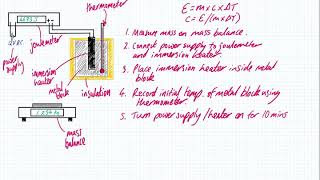 thermometer
E = m x c x ΔT
c = E/(m x ΔT)
joulemeter
power
supply
immersion
heater
metal
block
insulation
mass
balance
1. Measure mass on mass balance.
2. Connect power supply to joulemeter
and immersion heater.
3. Place immersion heater inside metal
block
4. Record initial temp. of metal block using
thermometer.
5. Turn power supply/heater on for 10 mins